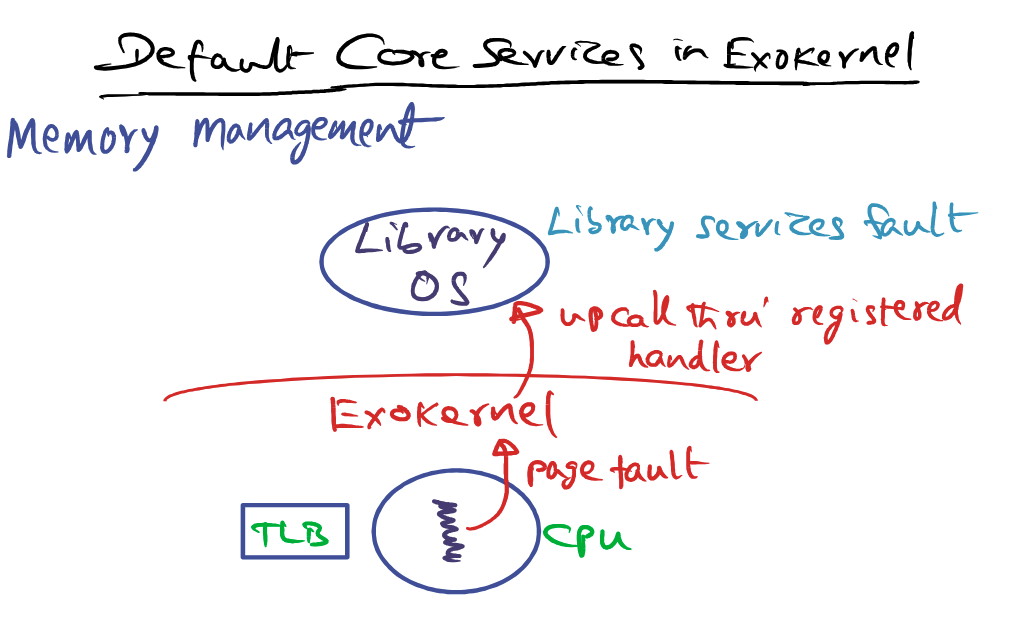 Default Core Services in Exokernel
Memory management
Library OS
Library services fault
upcall thru' registered
handler
Exokernel
page fault
TLB
CPU